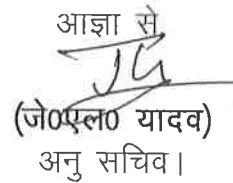 आज्ञा से
(जे0एल0 यादव)
अनु सचिव।